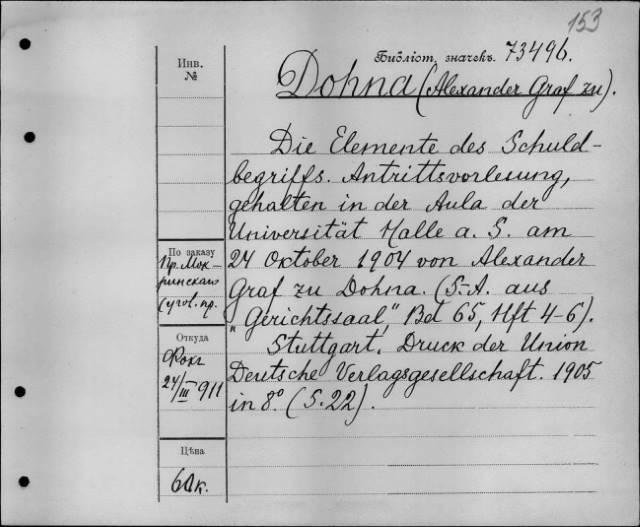 153
Библіот. значекъ. 73496.
Dohna (Alexander Graf zu).
Die Elemente des Schuld-
begriffs. Antrittsvorlesung,
gehalten in der Aula der
Universität Halle a. S. am
24 Oktober 1904 von Alexander
Graf zu Dohna. (S.-A. aus
"Gerichtssaal", Bd 65, Hft 4-6).
Stuttgart. Druck der Union
Deutsche Verlagsgesellschaft. 1905
in 8º. (S. 22).
Инв.
№
По заказу
Пр. Мок-
ринскаго
(угол. пр.
Откуда
24/III 911
Цѣна
60к.